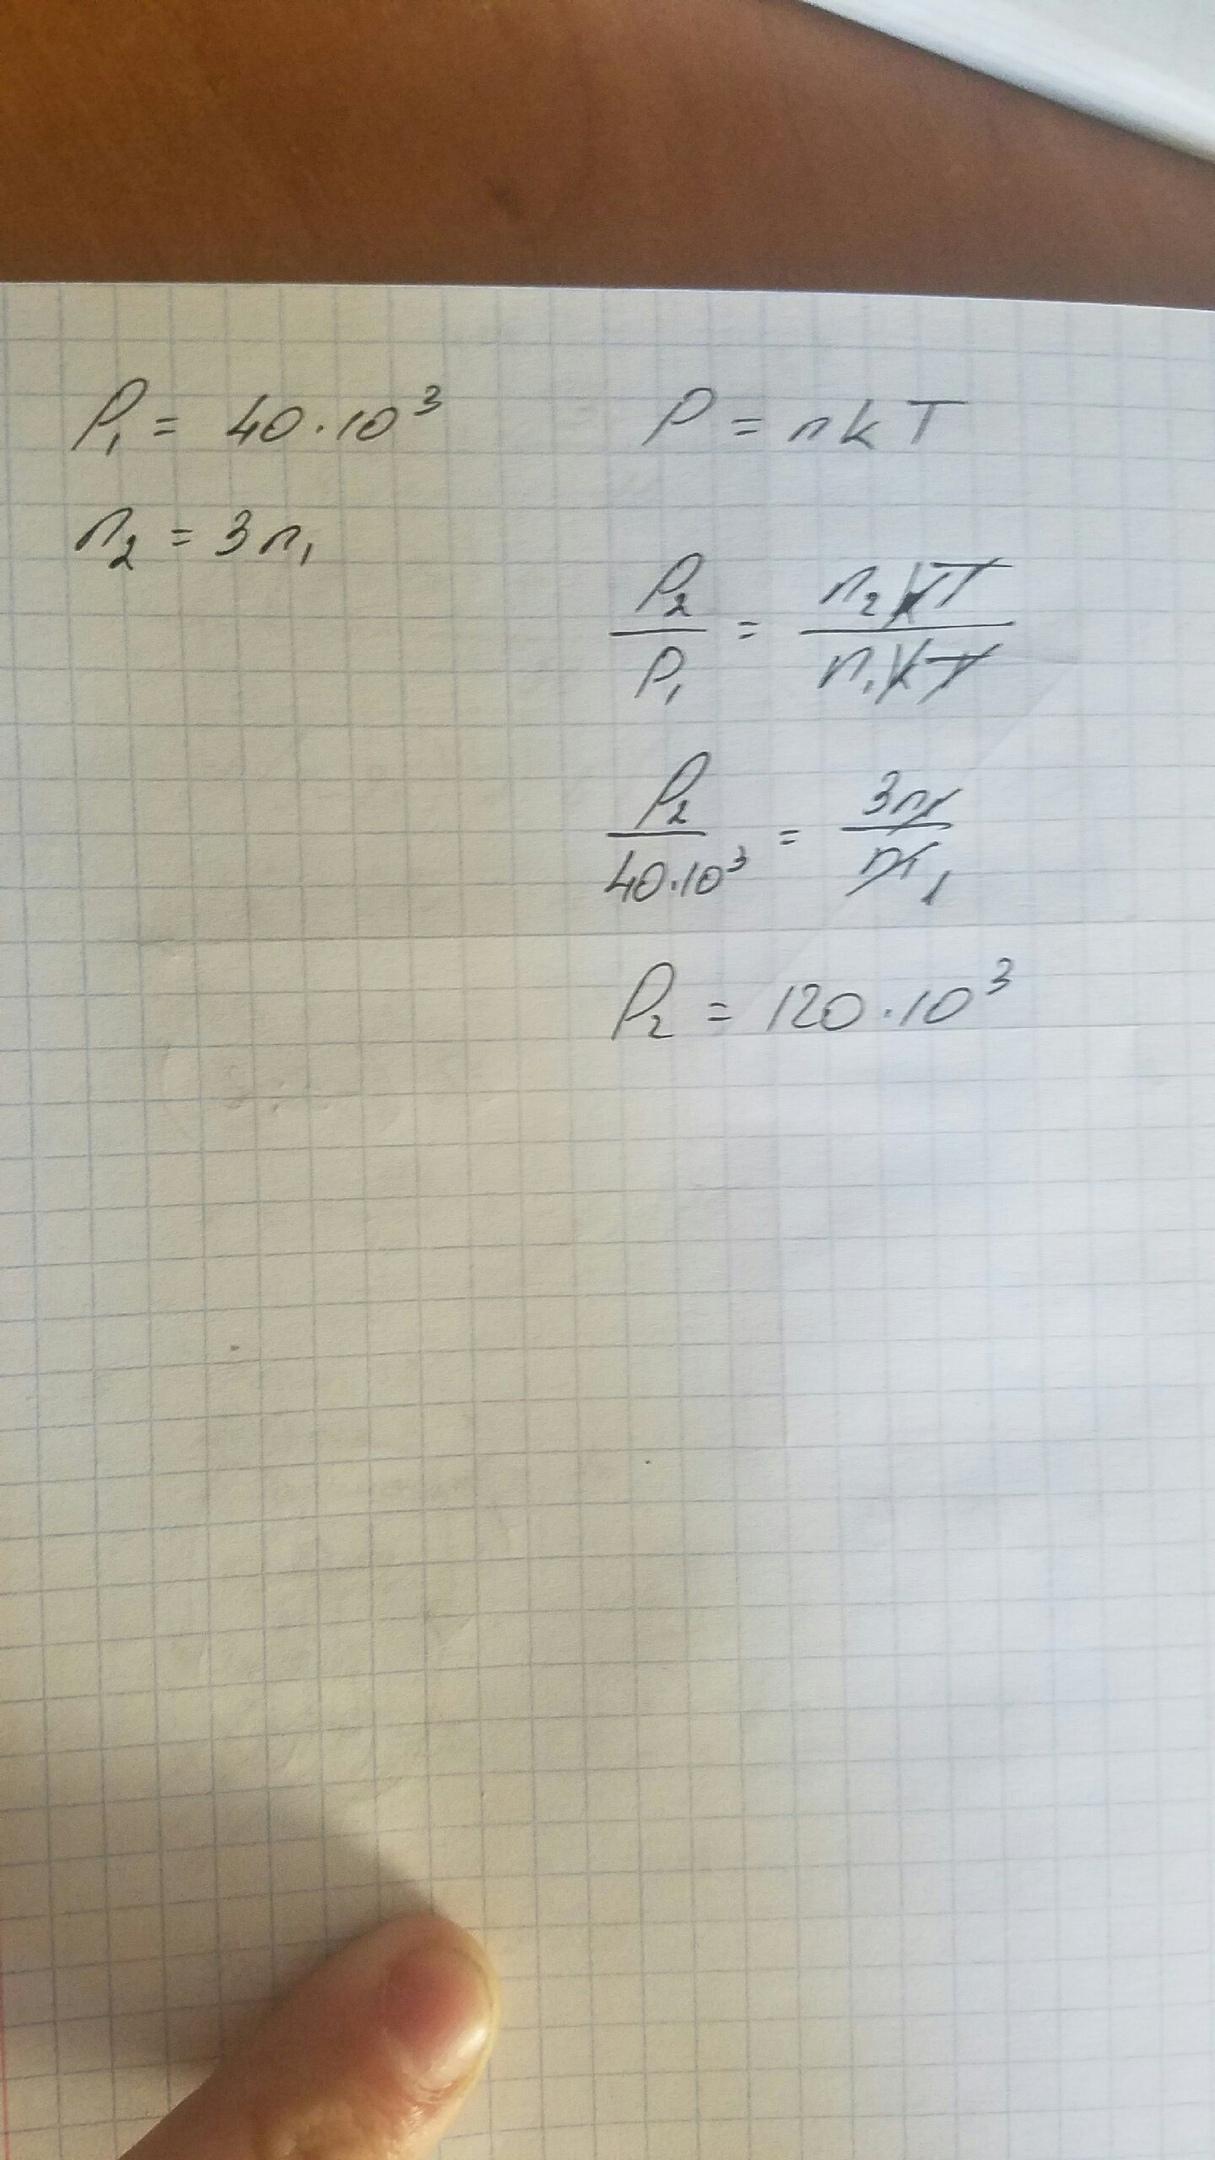 P₁ = 40·10³
n₂ = 3n₁
P = nkT
P₂/P₁ = n₂kT/n₁kT
P₂/40·10³ = 3n₁/n₁
P₂ = 120·10³